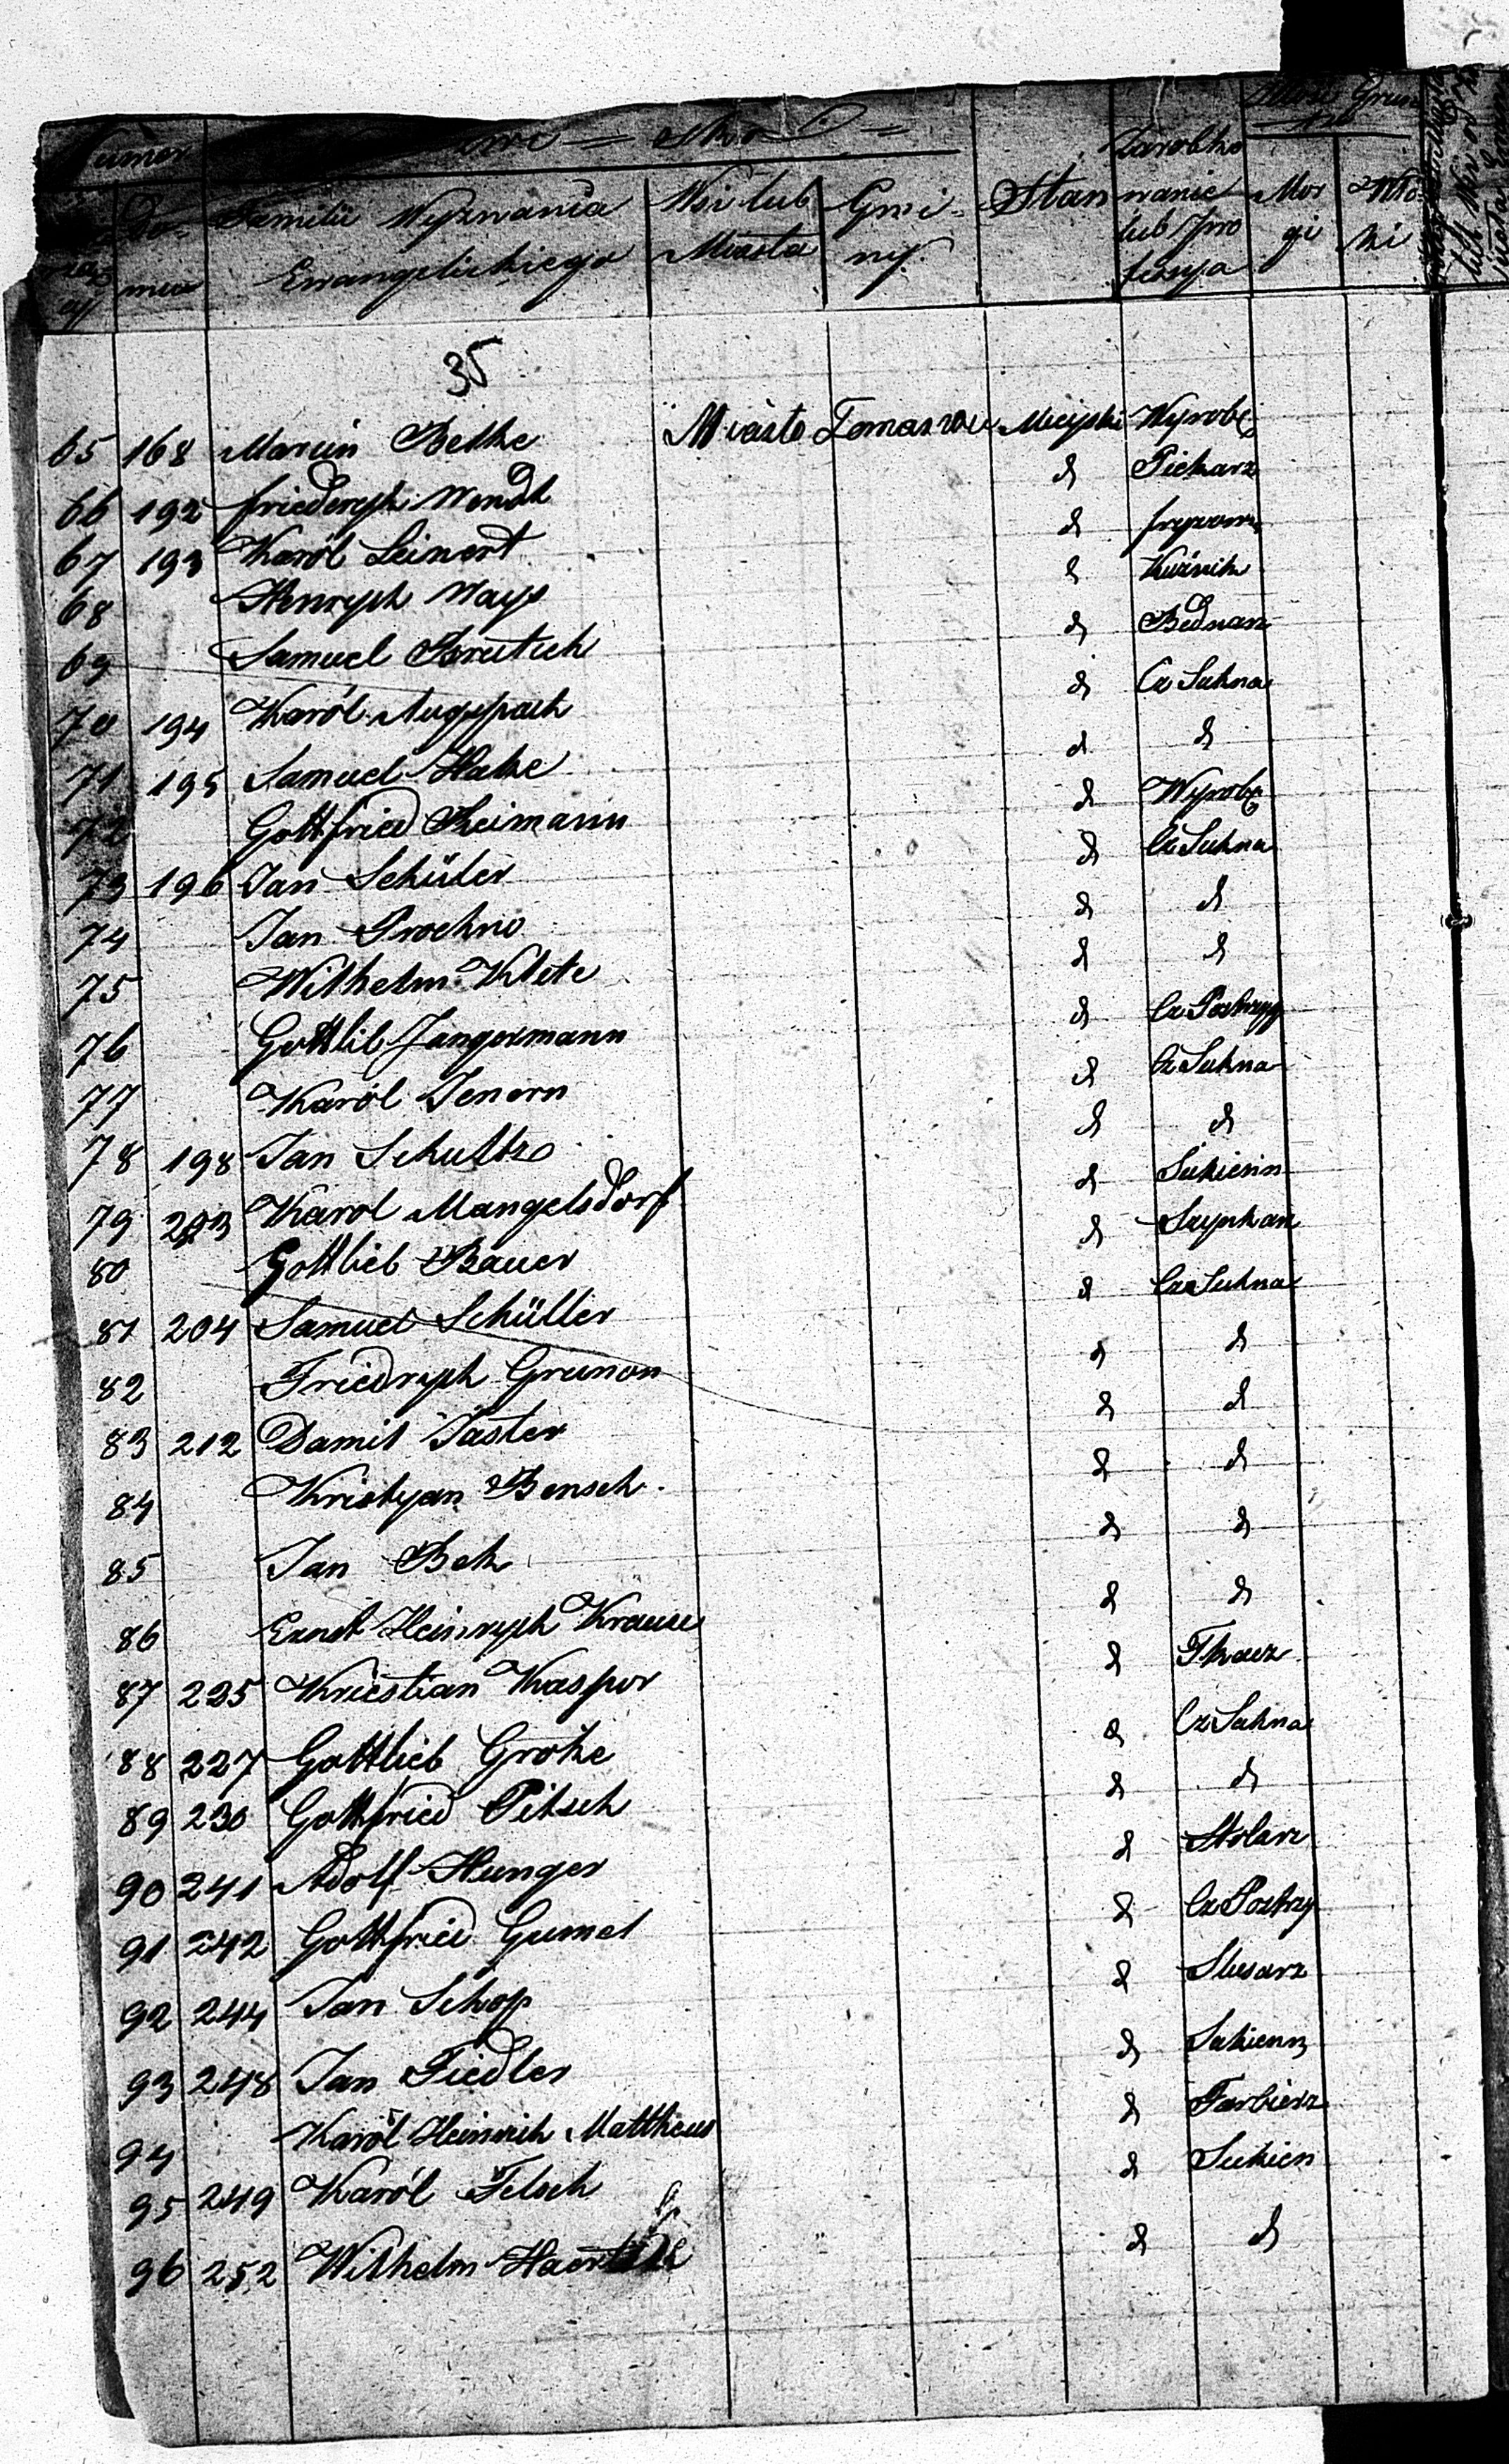 Numer
Familii Wyznania Ewangelickiego
Wsi lub Miasta
Gminy.
Stan
Zarobkowanie lub Professya
Morgi
mu
35
65 168 Marcin Bethe Miasto Tomaszow Mieyski Wyrobę
66 192 friederych Wendt d Piekarz
67 193 Karól Leinert d
68 Henrych Mays d Kuśnik
69 Samuel d Bednarz
70 194 Karól d Cz Sukna
71 195 Samuel Hake d d
72 Gottfried Reimann d Wyrobę
73 196 Jan Schüler d Cz Sukna
74 Jan Prochno d d
75 Wilhelm Klete d d
76 Gottlib Jangermann d Cz Postrzyg
77 Karól Jenern d Cz Sukna
78 198 Jan Schultz d d
79 203 Karol Mangelsdorf d Sukienn
80 Gottlieb Bauer d
81 204 Samuel Schüller d Cz Sukna
82 Friedrych Grunon d d
83 212 Daniel Jaster d d
84 Kristyan Bensch d d
85 Jan Bek d d
86 Ernst Heinrych Krause d d
87 225 Kriestian Kasper d Tkacz
88 227 Gottlieb Grotke d Cz Sukna
89 230 Gottfried Pitsch d d
90 241 Adolf Hunger d Stolarz
91 242 Gottfried Gumel d Cz Postrzy
92 244 Jan Schop d Slusarz
93 248 Jan Fiedler d Sukienn
94 Karól Heinrich Mattheus d Farbierz
95 249 Karól Felsch d Sukien
96 252 Wilhelm d d